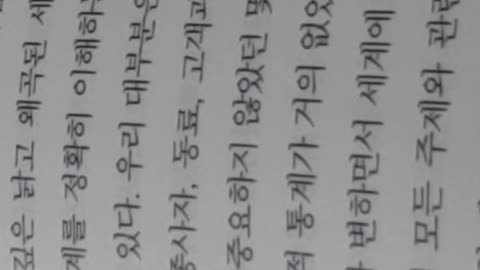 낡고 왜곡된 세
계를 정확히 이해하
있다. 우리 대부분은
종사자, 동료, 고객과
중요하지 않았던
적 통계가 거의 없었
변하면서 세계에
모든 주제와 관련